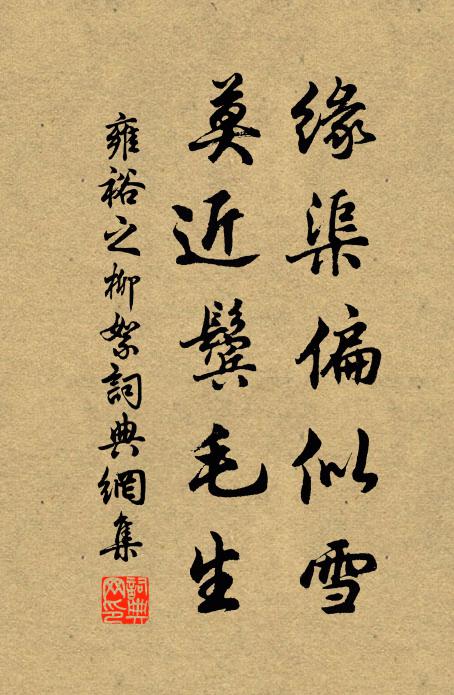 缘渠偏似雪
莫近鬓毛生
雍裕之柳絮詞典網集
詞典网印